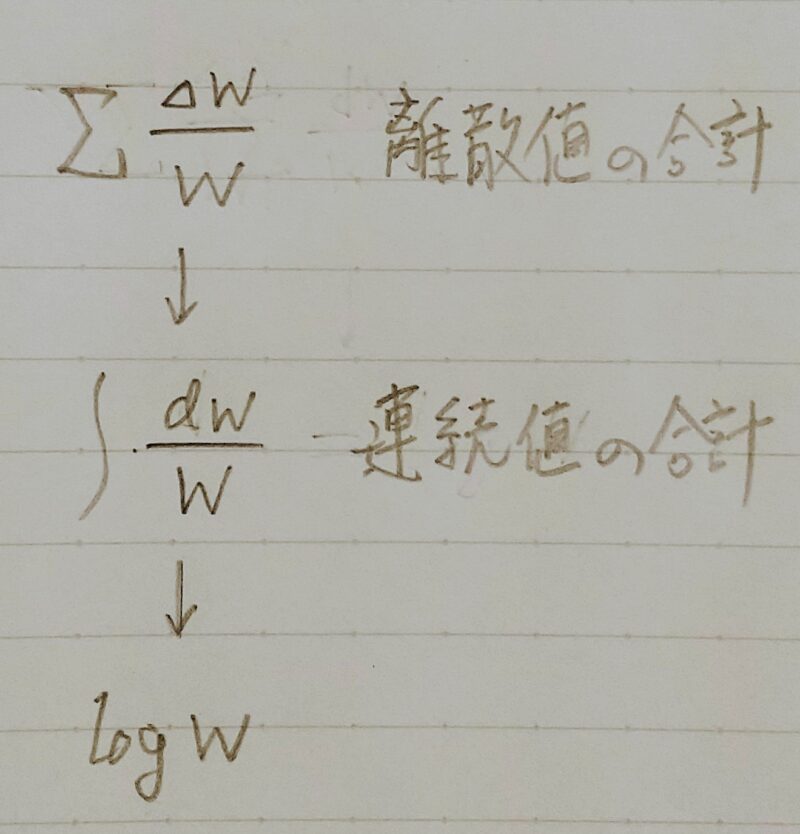 ∑ ΔW/W 離散値の合計
↓
∫ dW/W 連続値の合計
↓
log W